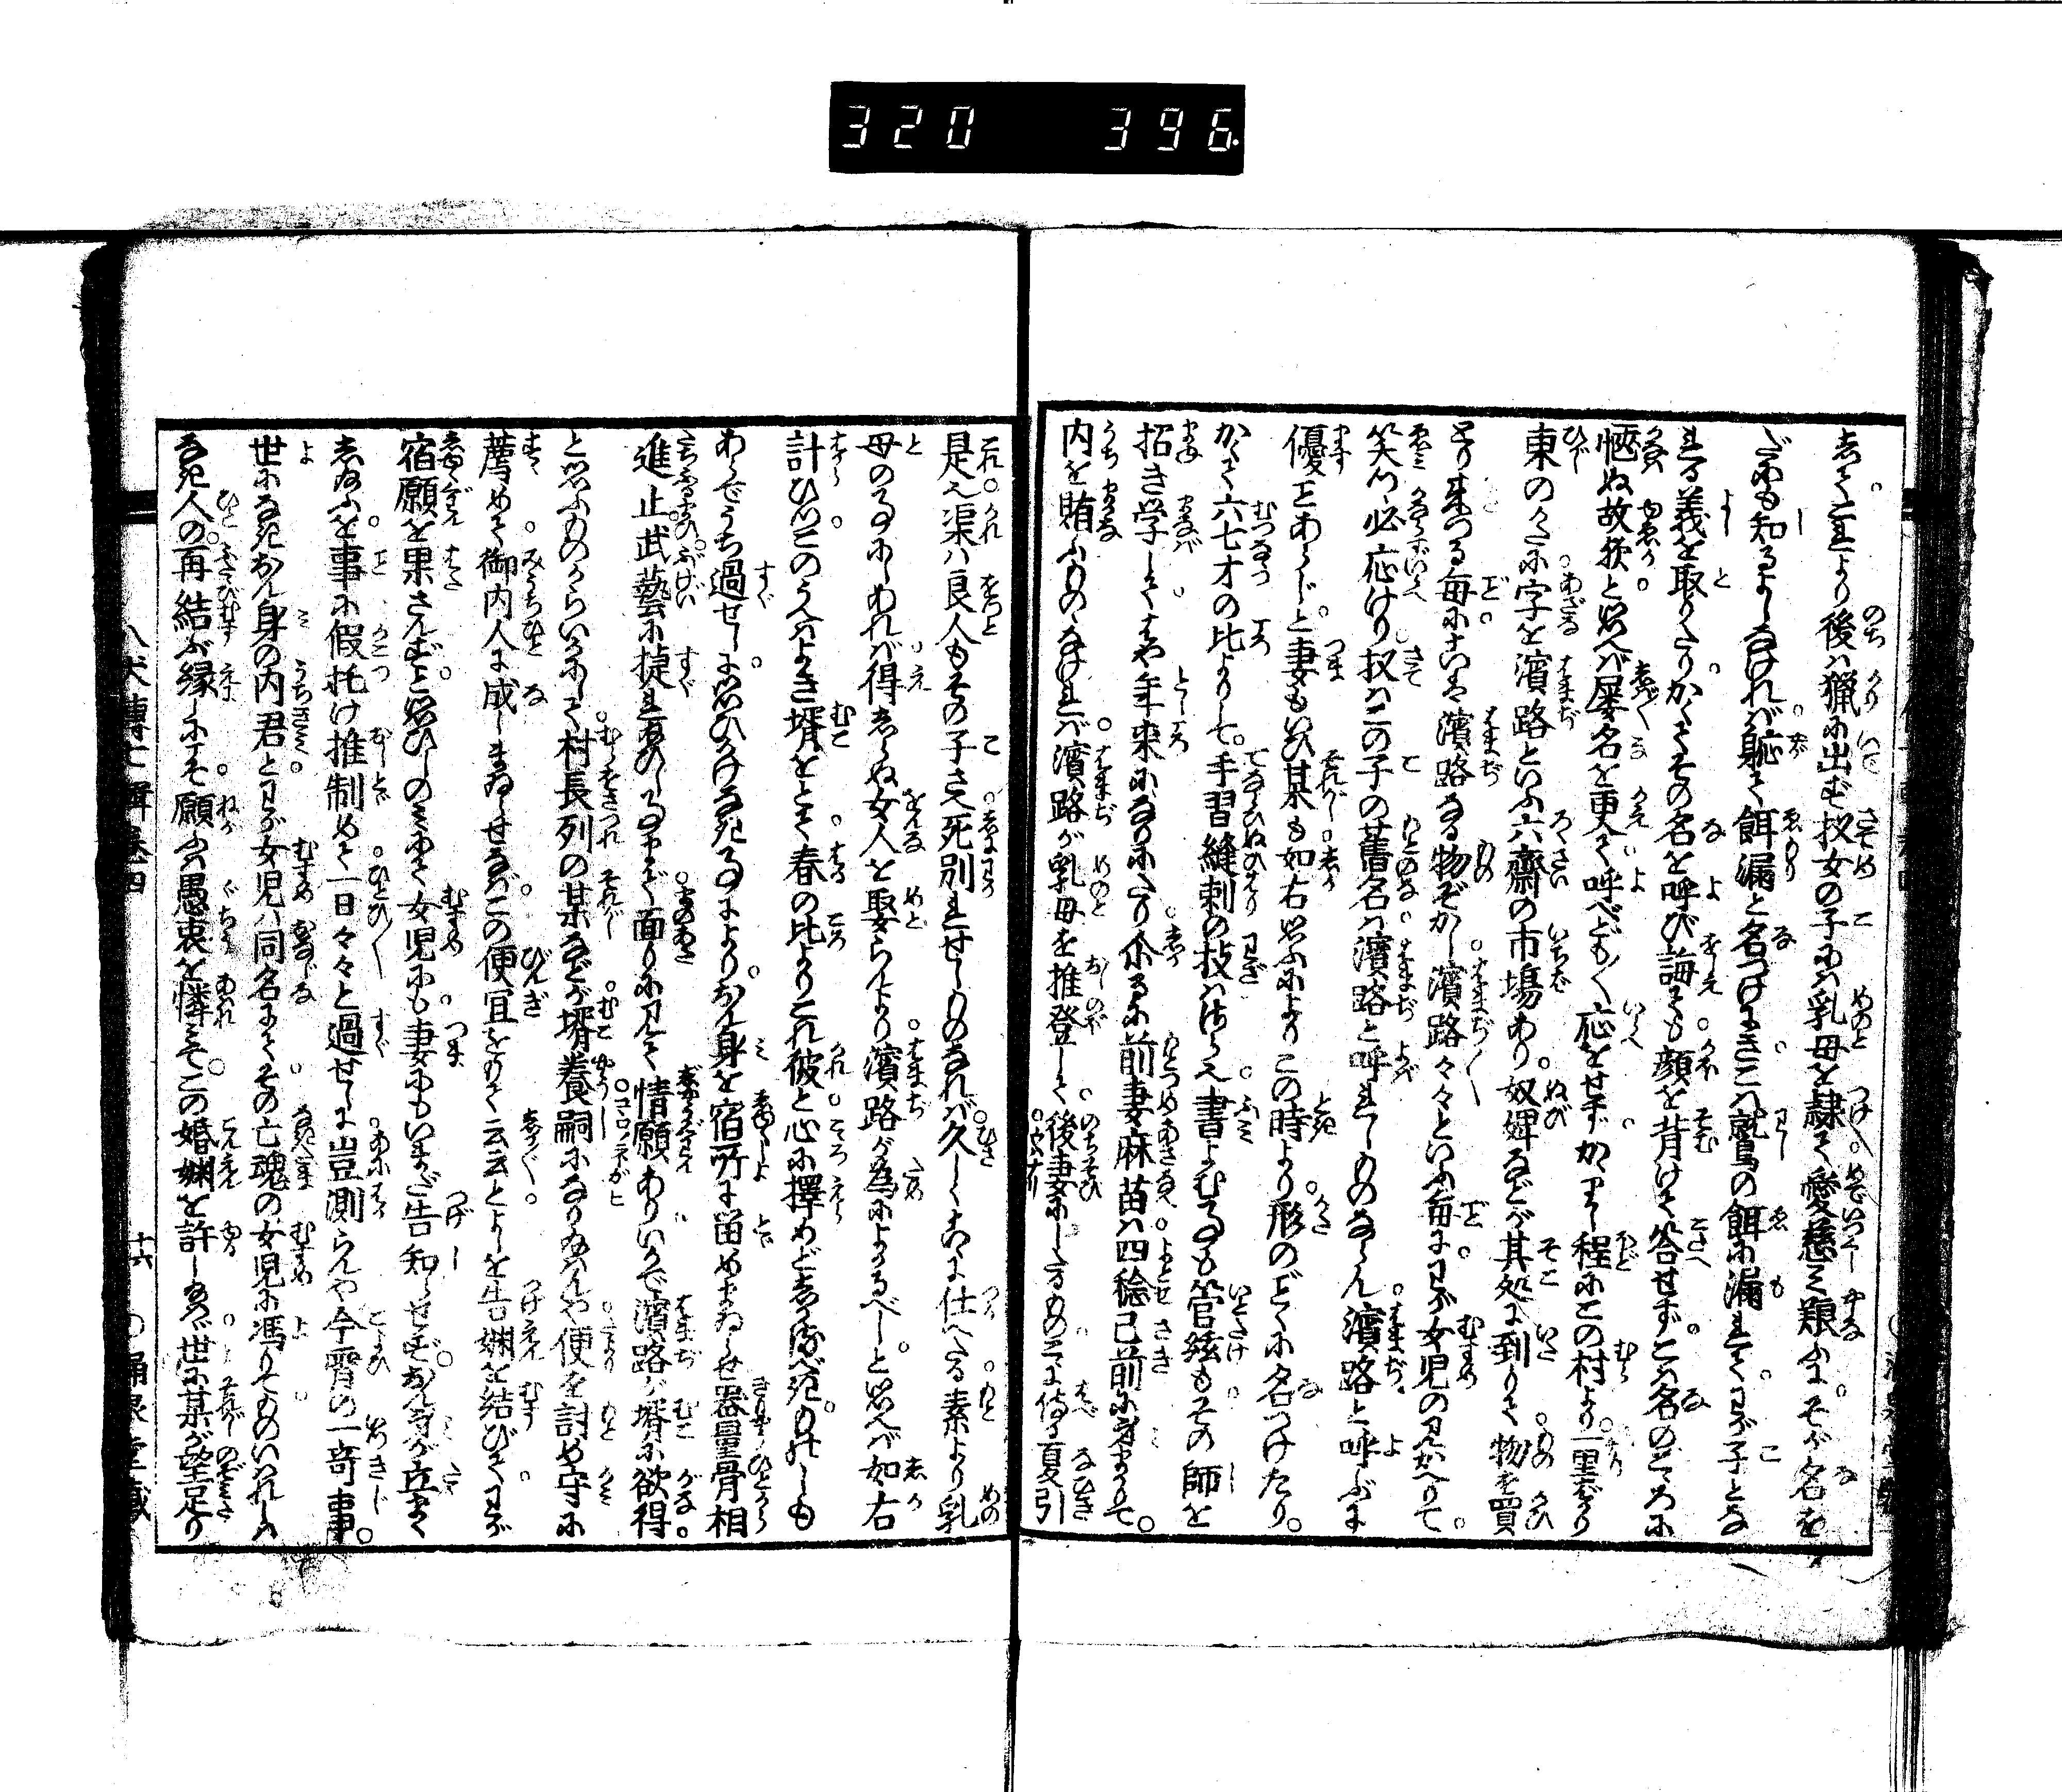 320 396
して、これより後は猟に出ず扨女の子には乳母を隷て愛慈み艱ふにそが名を
だにも知るよしなければ恥て餌漏と名つけにきこは鷲の餌に漏れてわが子とな
れる義を取りたりかくてその名を呼び誨ても顔を背けて答せずこは名のこゝろに
愜ぬ故欤と思へば屡名を更て呼べども〳〵応をせずかゝりし程にこの村より一里ばかり
東のかたに字を濱路といふ六齋の市場あり奴婢などが其処に到りて物を買
とり来つる毎にこは濱路なる物ぞかし濱路々々といふ毎にわが女児の見かへりて
笑つゝ必応けり扨はこの子の舊名は濱路と呼れしものならん濱路と呼ぶに
優ことあらじと妻もいひ某も如右思ふによりこの時より形のごとくに名つけたり
かくて六七才の比よりして手習縫刺の技はさらなり書よむ事も管絃もその師を
招き学してはや年来になりにたり尓るに前妻麻苗は四稔已前に身まかりて
内を賄ふものゝなければ濱路が乳母を推登して後妻にしたるものこゝに侍る夏引
是也渠は良人もその子さえ死別れせしものなれば久しくこゝに仕へたる素より乳
母の事にしあれば得しらぬ女人を娶らんより濱路が為によかるべしと思へば如右
計ひつこのうへはよき壻をとて春の比よりこれ彼と心に擇めどしかるべきものしも
あらでうち過せしに思ひかけなき事によりおん身を宿所に留めまゐらせ器量骨相
進止武藝に捷れ給ひし事まで面りに見て情願ありいかで濱路が壻に欲得
と思ふものからいかにして村長列の某などが壻養嗣になり給はんや便を討め守に
薦めて御内人に成しまゐらせなばこの便宜をもて云云とよしを告姻を結びてわが
宿願を果さんずと思ひしのみにて女児にも妻にもいまだ告知らせずおん身が立まく
し給ふを事に假托け推制めて一日々々と過せしに豈測らんや今霄の一奇事
世になきおん身の内君とわが女児は同名にてその亡魂の女児に憑りてものいはれしは
なき人の再結ぶ縁しにこそ願ふは愚衷を憐みてこの婚姻を許し給はゞ世に某が望足り
八犬傳七輯巻四 十六 〇涌泉堂藏